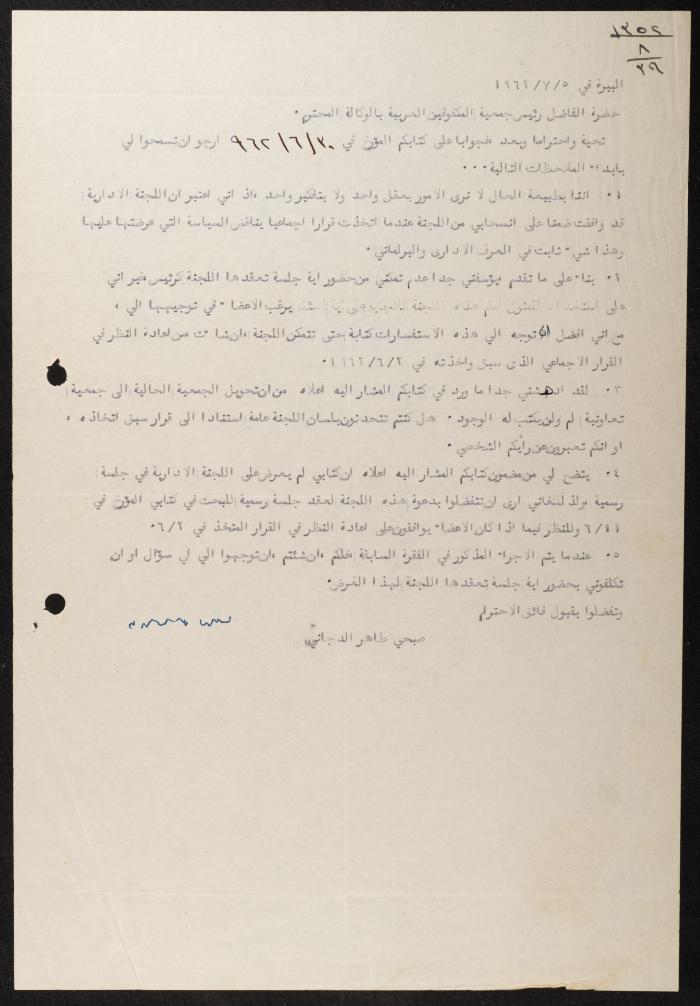 ١٣٥٢
٨
٣٩
البيرة في ١٩٦٢/٧/٥
حضرة الفاضل رئيس جمعية المكفوفين العربية بالوكالة المحترم ٠
تحية واحتراما وبعد ، فجوابا على كتابكم المؤرخ في ٩٦٢/٦/٣٠ ارجو ان تسمحوا لي
بابداء الملاحظات التالية ٠٠٠
١ ٠ اننا بطبيعة الحال لا نرى الامور بعقل واحد ولا بتفكير واحد ، اذ اني اعتبر ان اللجنة الادارية
قد وافقت ضمنا على انسحابي من اللجنة عندما اتخذت قرارا اجماعيا يناقض السياسة التي عرضتها عليها
وهذا شيء ثابت في العرف الاداري والبرلماني ٠
٢ ٠ بناء على ما تقدم ، يؤسفني جدا عدم تمكني من حضور اية جلسة تعقدها اللجنة كرئيس ، غير اني
على استعداد للمثول امام هذه اللجنة للاجابة على اية اسئلة يرغب الاعضاء في توجيهها الي ،
مع اني افضل ان توجه الي هذه الاستفسارات كتابة حتى تتمكن اللجنة ، ان شاءت من اعادة النظر في
القرار الاجماعي الذي سبق واخذته في ١٩٦٢/٦/٢ ٠
٣ ٠ لقد ادهشني جدا ما ورد في كتابكم المشار اليه اعلاه من ان تحويل الجمعية الحالية الى جمعية
تعاونية لم ولن يكتب له الوجود ٠ هل كنتم تتحدثون بلسان اللجنة عامة استنادا الى قرار سبق اتخاذه ،
او انكم تعبرون عن رأيكم الشخصي ٠
٤ ٠ يتضح لي من مضمون كتابكم المشار اليه اعلاه ان كتابي لم يعرض على اللجنة الادارية في جلسة
رسمية ، ولذلك فاني ارى ان تتفضلوا بدعوة هذه اللجنة لعقد جلسة رسمية للبحث في كتابي المؤرخ في
٦/١١ وللنظر فيما اذا كان الاعضاء يوافقون على اعادة النظر في القرار المتخذ في ٦/٢ ٠
٥ ٠ عندما يتم الاجراء المذكور في الفقرة السابقة ، فلكم ، ان شئتم ، ان توجهوا الي اي سؤال او ان
تكلفوني بحضور اية جلسة تعقدها اللجنة لهذا الغرض ٠
وتفضلوا بقبول فائق الاحترام
صبحي طاهر الدجاني